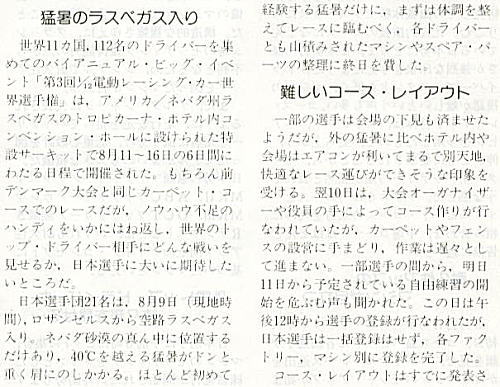 猛暑のラスベガス入り
世界11カ国, 112名のドライバーを集
めてのバイアニュアル・ビッグ・イベ
ント「第3回1/12電動レーシング・カー世
界選手権」は，アメリカ／ネバダ州ラ
スベガスのトロピカーナ・ホテル内コ
ンベンション・ホールに設けられた特
設サーキットで8月11〜16日の6日間に
わたる日程で開催された。もちろん前
デンマーク大会と同じカーペット・コ
ースでのレースだが，ノウハウ不足の
ハンディをいかにはね返し，世界のト
ップ・ドライバー相手にどんな戦いを
見せるか，日本選手に大いに期待した
いところだ。
日本選手団21名は，8月9日（現地時
間），ロサンゼルスから空路ラスベガス
入り。ネバダ砂漠の真ん中に位置する
だけあり，40℃を越える猛暑がドンと
重く肩にのしかかる。ほとんど初めて
経験する猛暑だけに，まずは体調を整
えてレースに臨むべく，各ドライバー
とも山積みされたマシンやスペア・パ
ーツの整理に終日を費した。
難しいコース・レイアウト
一部の選手は会場の下見も済ませた
ようだが，外の猛暑に比べホテル内や
会場はエアコンが利いてまるで別天地，
快適なレース運びができそうな印象を
受ける。翌10日は，大会オーガナイザ
ーや役員の手によってコース作りが行
なわれていたが，カーペットやフェン
スの設営に手まどり，作業は遅々とし
て進まない。一部選手の間から，明日
11日から予定されている自由練習の開
始を危ぶむ声も聞かれた。この日は午
後12時から選手の登録が行なわれたが，
日本選手は一括登録はせず，各ファク
トリー，マシン別に登録を完了した。
コース・レイアウトはすでに発表さ